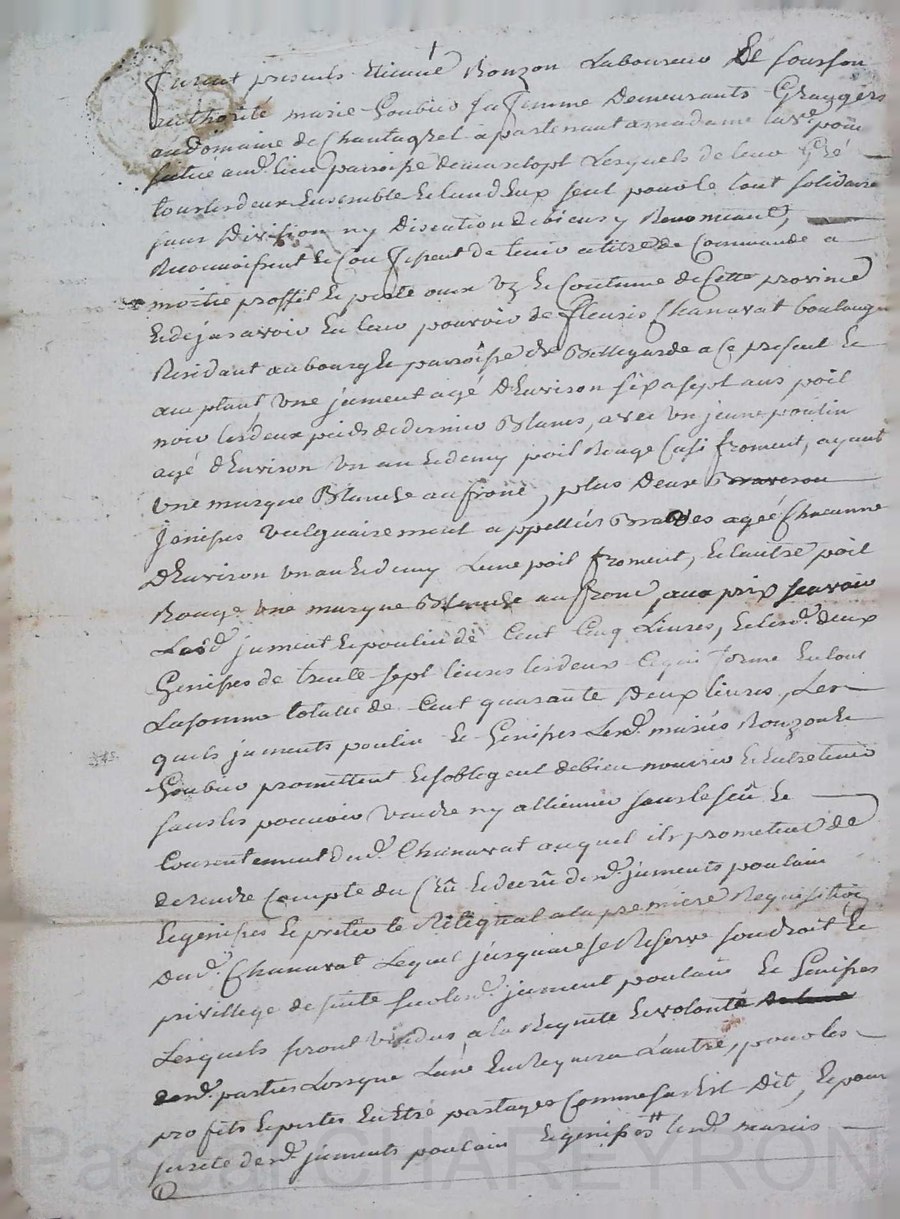 furent presents Etienne Ronzon Laboureur De son son
authorité marie Goubier sa femme Demeurants Grangers
au Domaine de Chantagret apartenant a madame la vᵉ
situé aud. lieu paroisse de marclopt Lesquels de leur Gré
tous les deux Ensemble Et lun d'Eux seul pour le tout solidaire
sans Division ny Discution de biens y Renonceant,
Reconnoissent Et Confessent de tenir a titre de Commande a
moitié proffit Et perte aux uz Et Coutume de Cette province
Et deja avoir En leur pouvoir de fleuris Chanavat boulanger
Residant au bourg Et paroisse de Bellegarde a Ce present Et
acceptant une jument agé D'Environ six a sept ans poil
noir les deux pieds de dernier Blancs, avec un jeune poulin
agé d'Environ un an Et demy poil Rouge Casi froment, ayant
une marque Blanche au front, plus Deux
Jenisses vulgairement appellées agée Chacunne
D'Environ un an Et demy Lune poil froment, Et l'autre poil
Rouge une marque Blanche au front, au prix scavoir
Lad. jument Et poulin de Cent Cinq Livres, Et lesd. deux
Genisses de trente sept livres les deux Ce qui forme En tout
La somme totalle de Cent quarante Deux livres, Les
quels juments poulin Et Genisses Lesd. mariés Ronzon Et
Goubier promettent Et s'obligent de bien nourrir Et Entretenir
sans les pouvoir vendre ny allienner sans le sçu Et
Consentement dud. Chanavat auquel ils promettent de
de rendre Compte du Crû Et decrû desd. juments poulain
Et genisses Et prétio le à la première Requisition
Dud. Chanavat Lequel jusqu'aice se Reserve son droit Et
privillege de suite sur lesd. jument poulain Et Genisses
Lesquels seront vendus a la Requete Et volonté
desd. parties Lorsque L'une En Requera L'autre, pour les
profits Et pertes En Etre partagés Comme sus Est Dit, Et pour
sureté desd. juments poulain Et genisses lesd. mariés
Pascal CHAREYRON